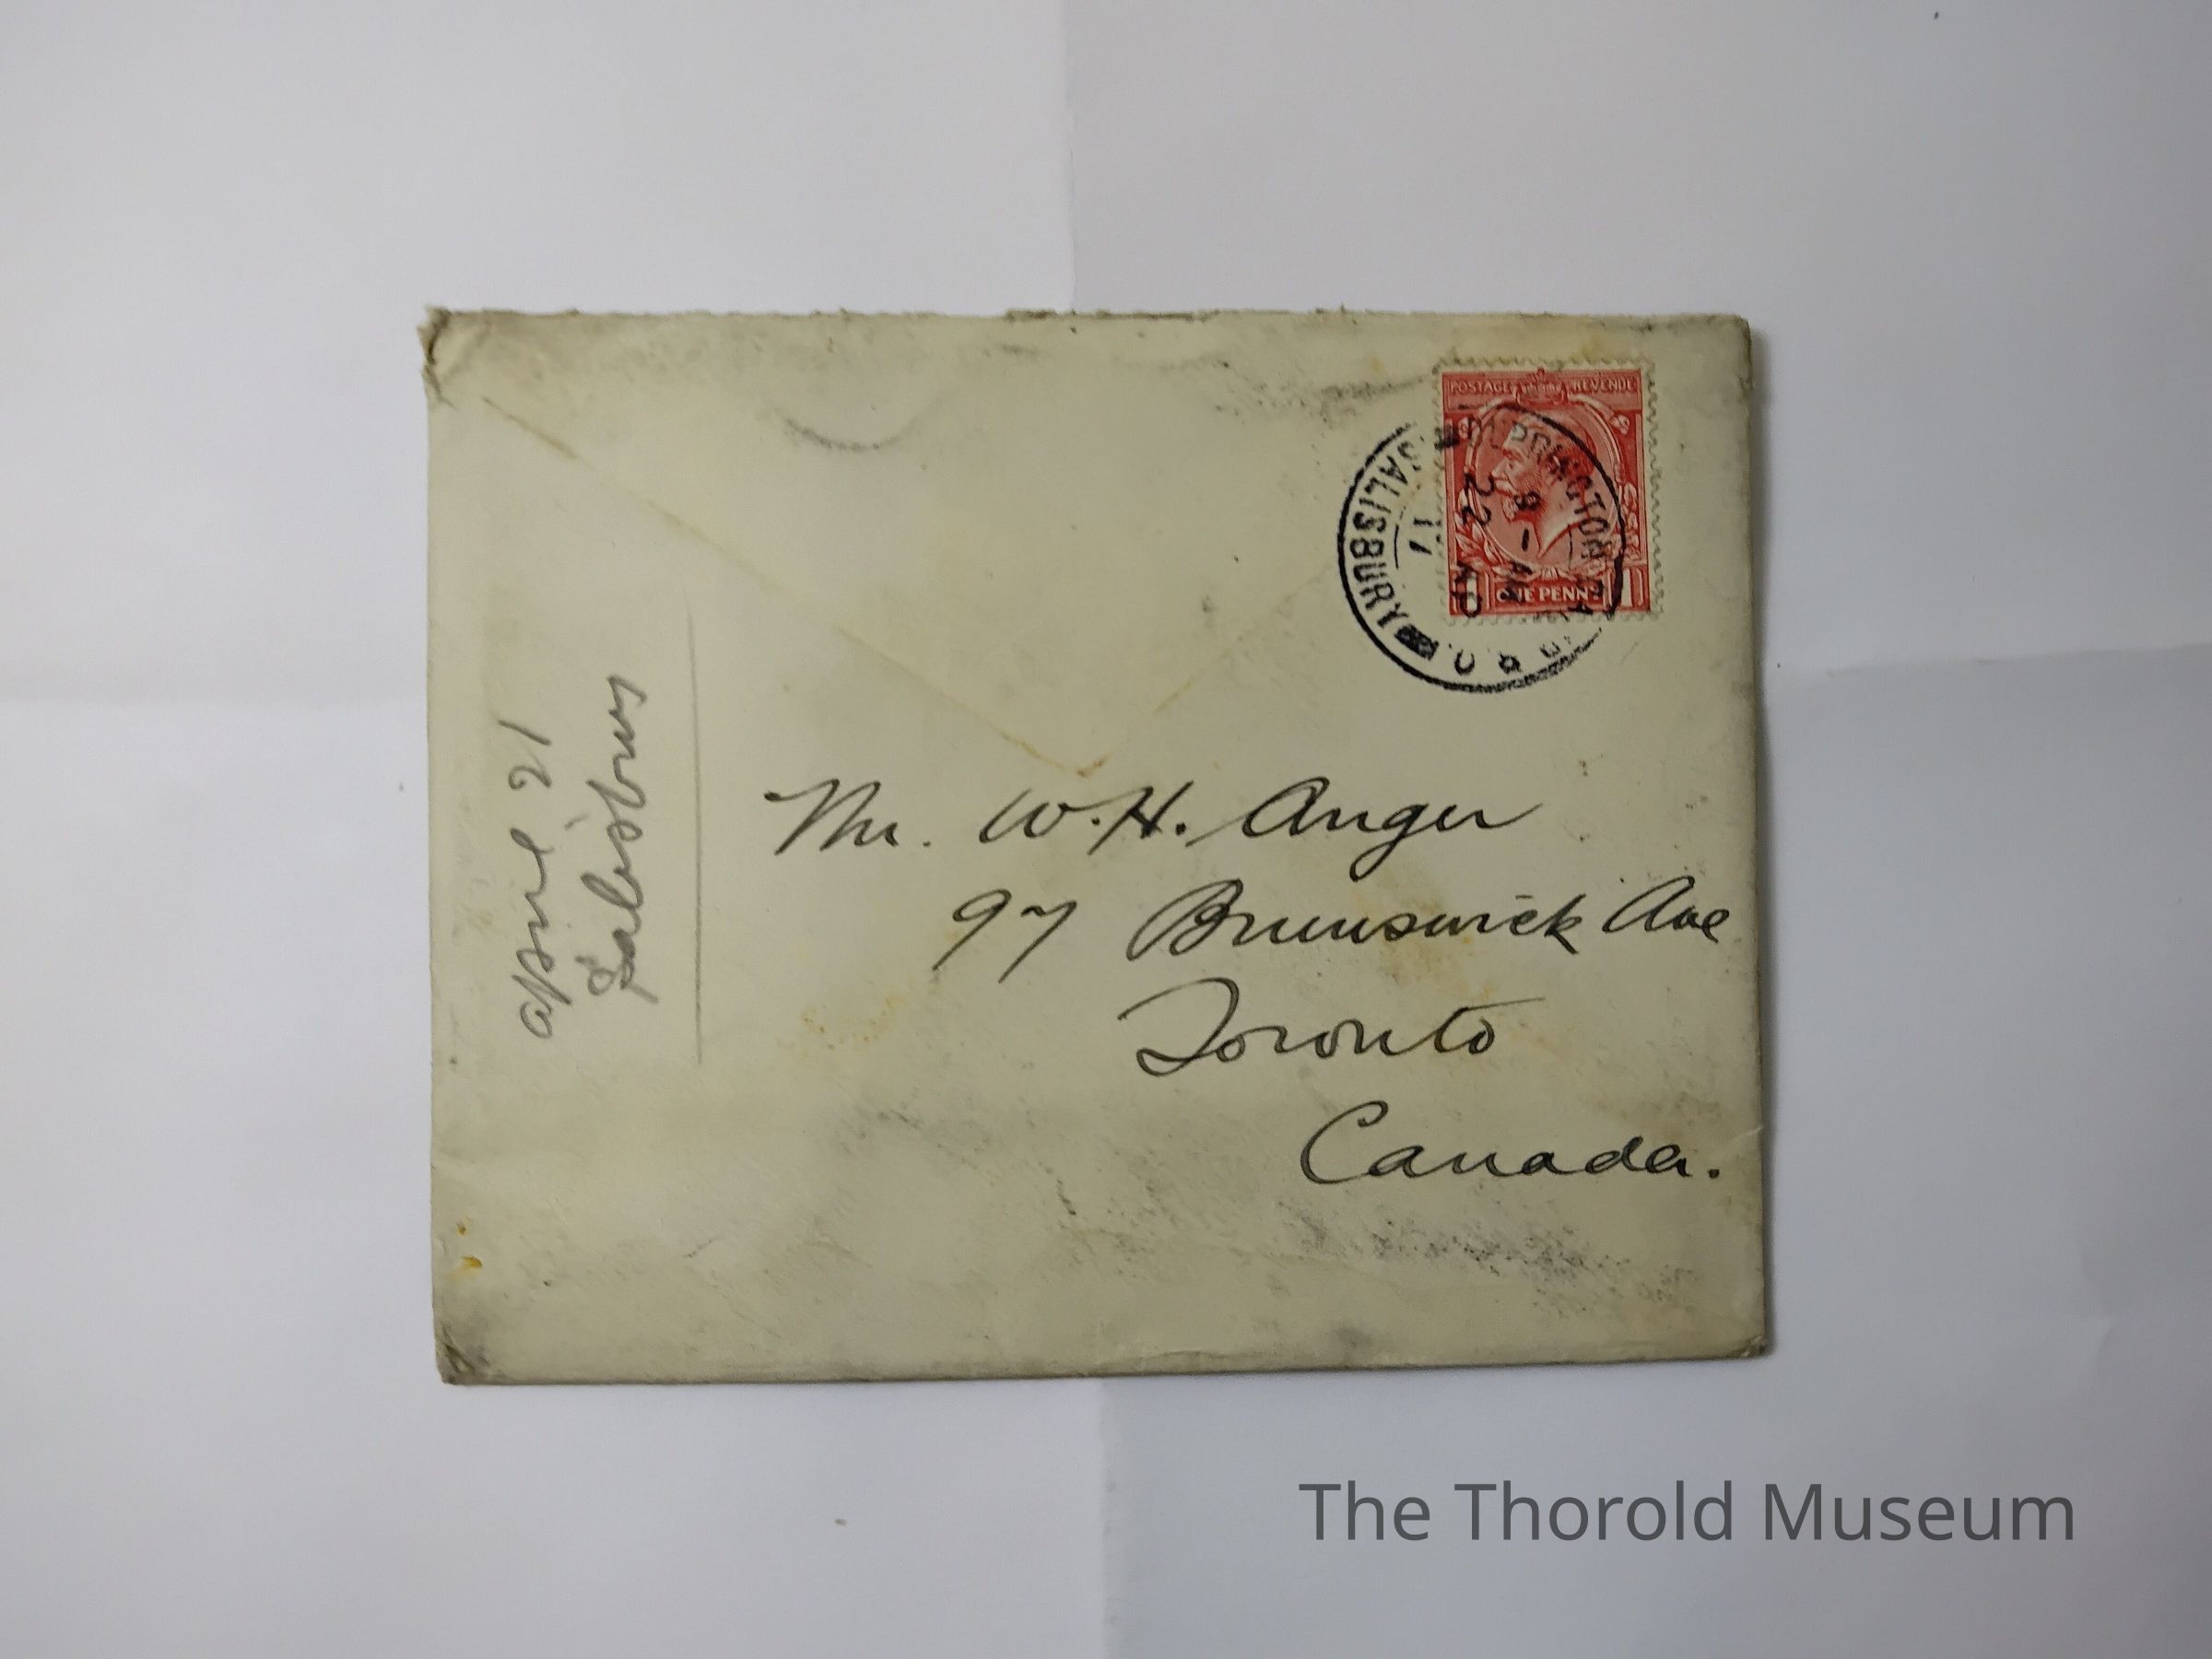 POSTAGE REVENUE
ONE PENNY
SALISBURY
9 - AM
22 AP
17
April 21
Salisbury
Mr. W. H. Anger
97 Brunswick Ave
Toronto
Canada.
The Thorold Museum